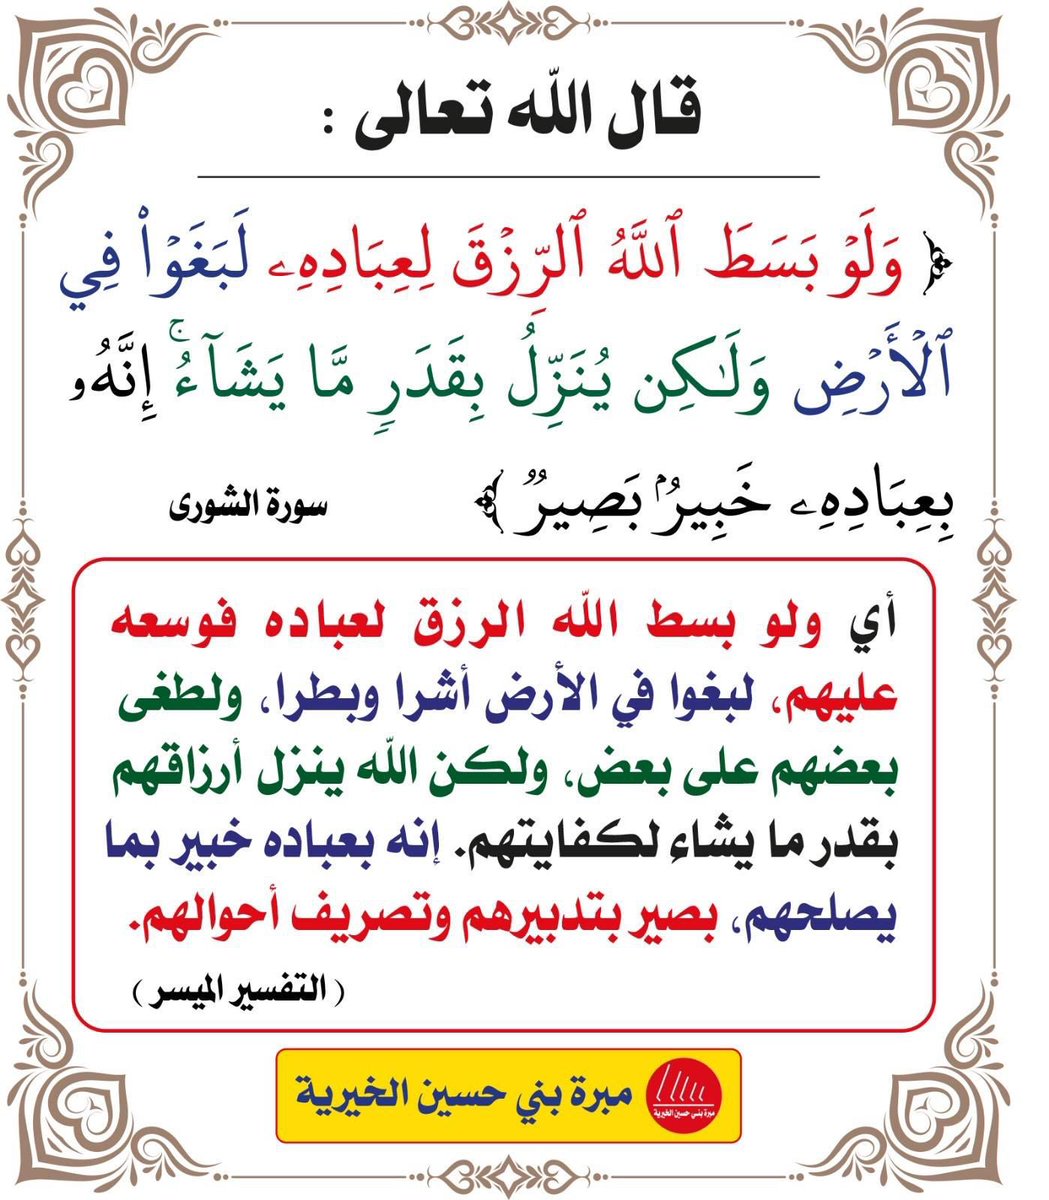 قال الله تعالى :
﴿ وَلَوۡ بَسَطَ ٱللَّهُ ٱلرِّزۡقَ لِعِبَادِهِۦ لَبَغَوۡاْ فِي
ٱلۡأَرۡضِ وَلَٰكِن يُنَزِّلُ بِقَدَرٖ مَّا يَشَآءُۚ إِنَّهُۥ
بِعِبَادِهِۦ خَبِيرُۢ بَصِيرٞ ﴾ سورة الشورى
أي ولو بسط الله الرزق لعباده فوسعه
عليهم، لبغوا في الأرض أشرا وبطرا، ولطغى
بعضهم على بعض، ولكن الله ينزل أرزاقهم
بقدر ما يشاء لكفايتهم. إنه بعباده خبير بما
يصلحهم، بصير بتدبيرهم وتصريف أحوالهم.
( التفسير الميسر )
مبرة بني حسين الخيرية
مبرة بني حسين الخيرية